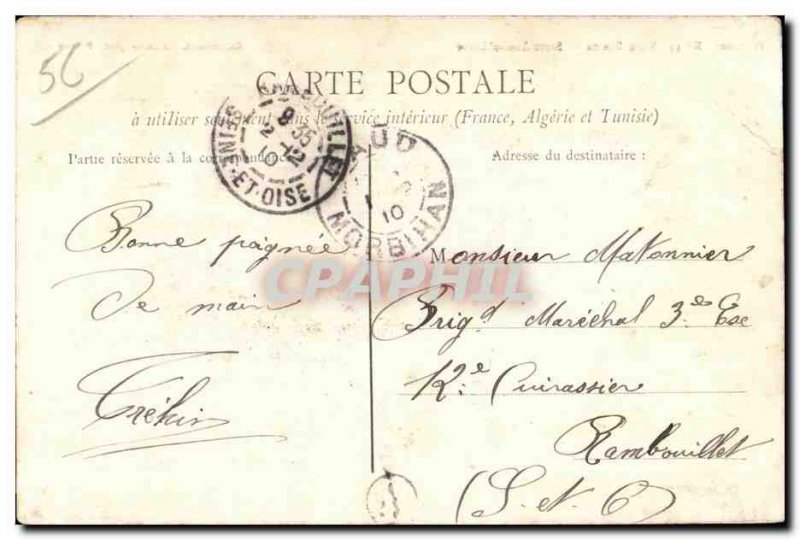 56
CARTE POSTALE
à utiliser seulement dans le service intérieur (France, Algérie et Tunisie)
Partie réservée à la correspondance
Adresse du destinataire :
RAMBOUILLET
9 35
2 -12
10
SEINE-ET-OISE
BAUD
10
MORBIHAN
Bonne poignée
de main
Tréhin
CPAPHIL
Monsieur Makonnier
Brigd Maréchal 3e Esc
12e Cuirassier
Rambouillet
(S. et O)